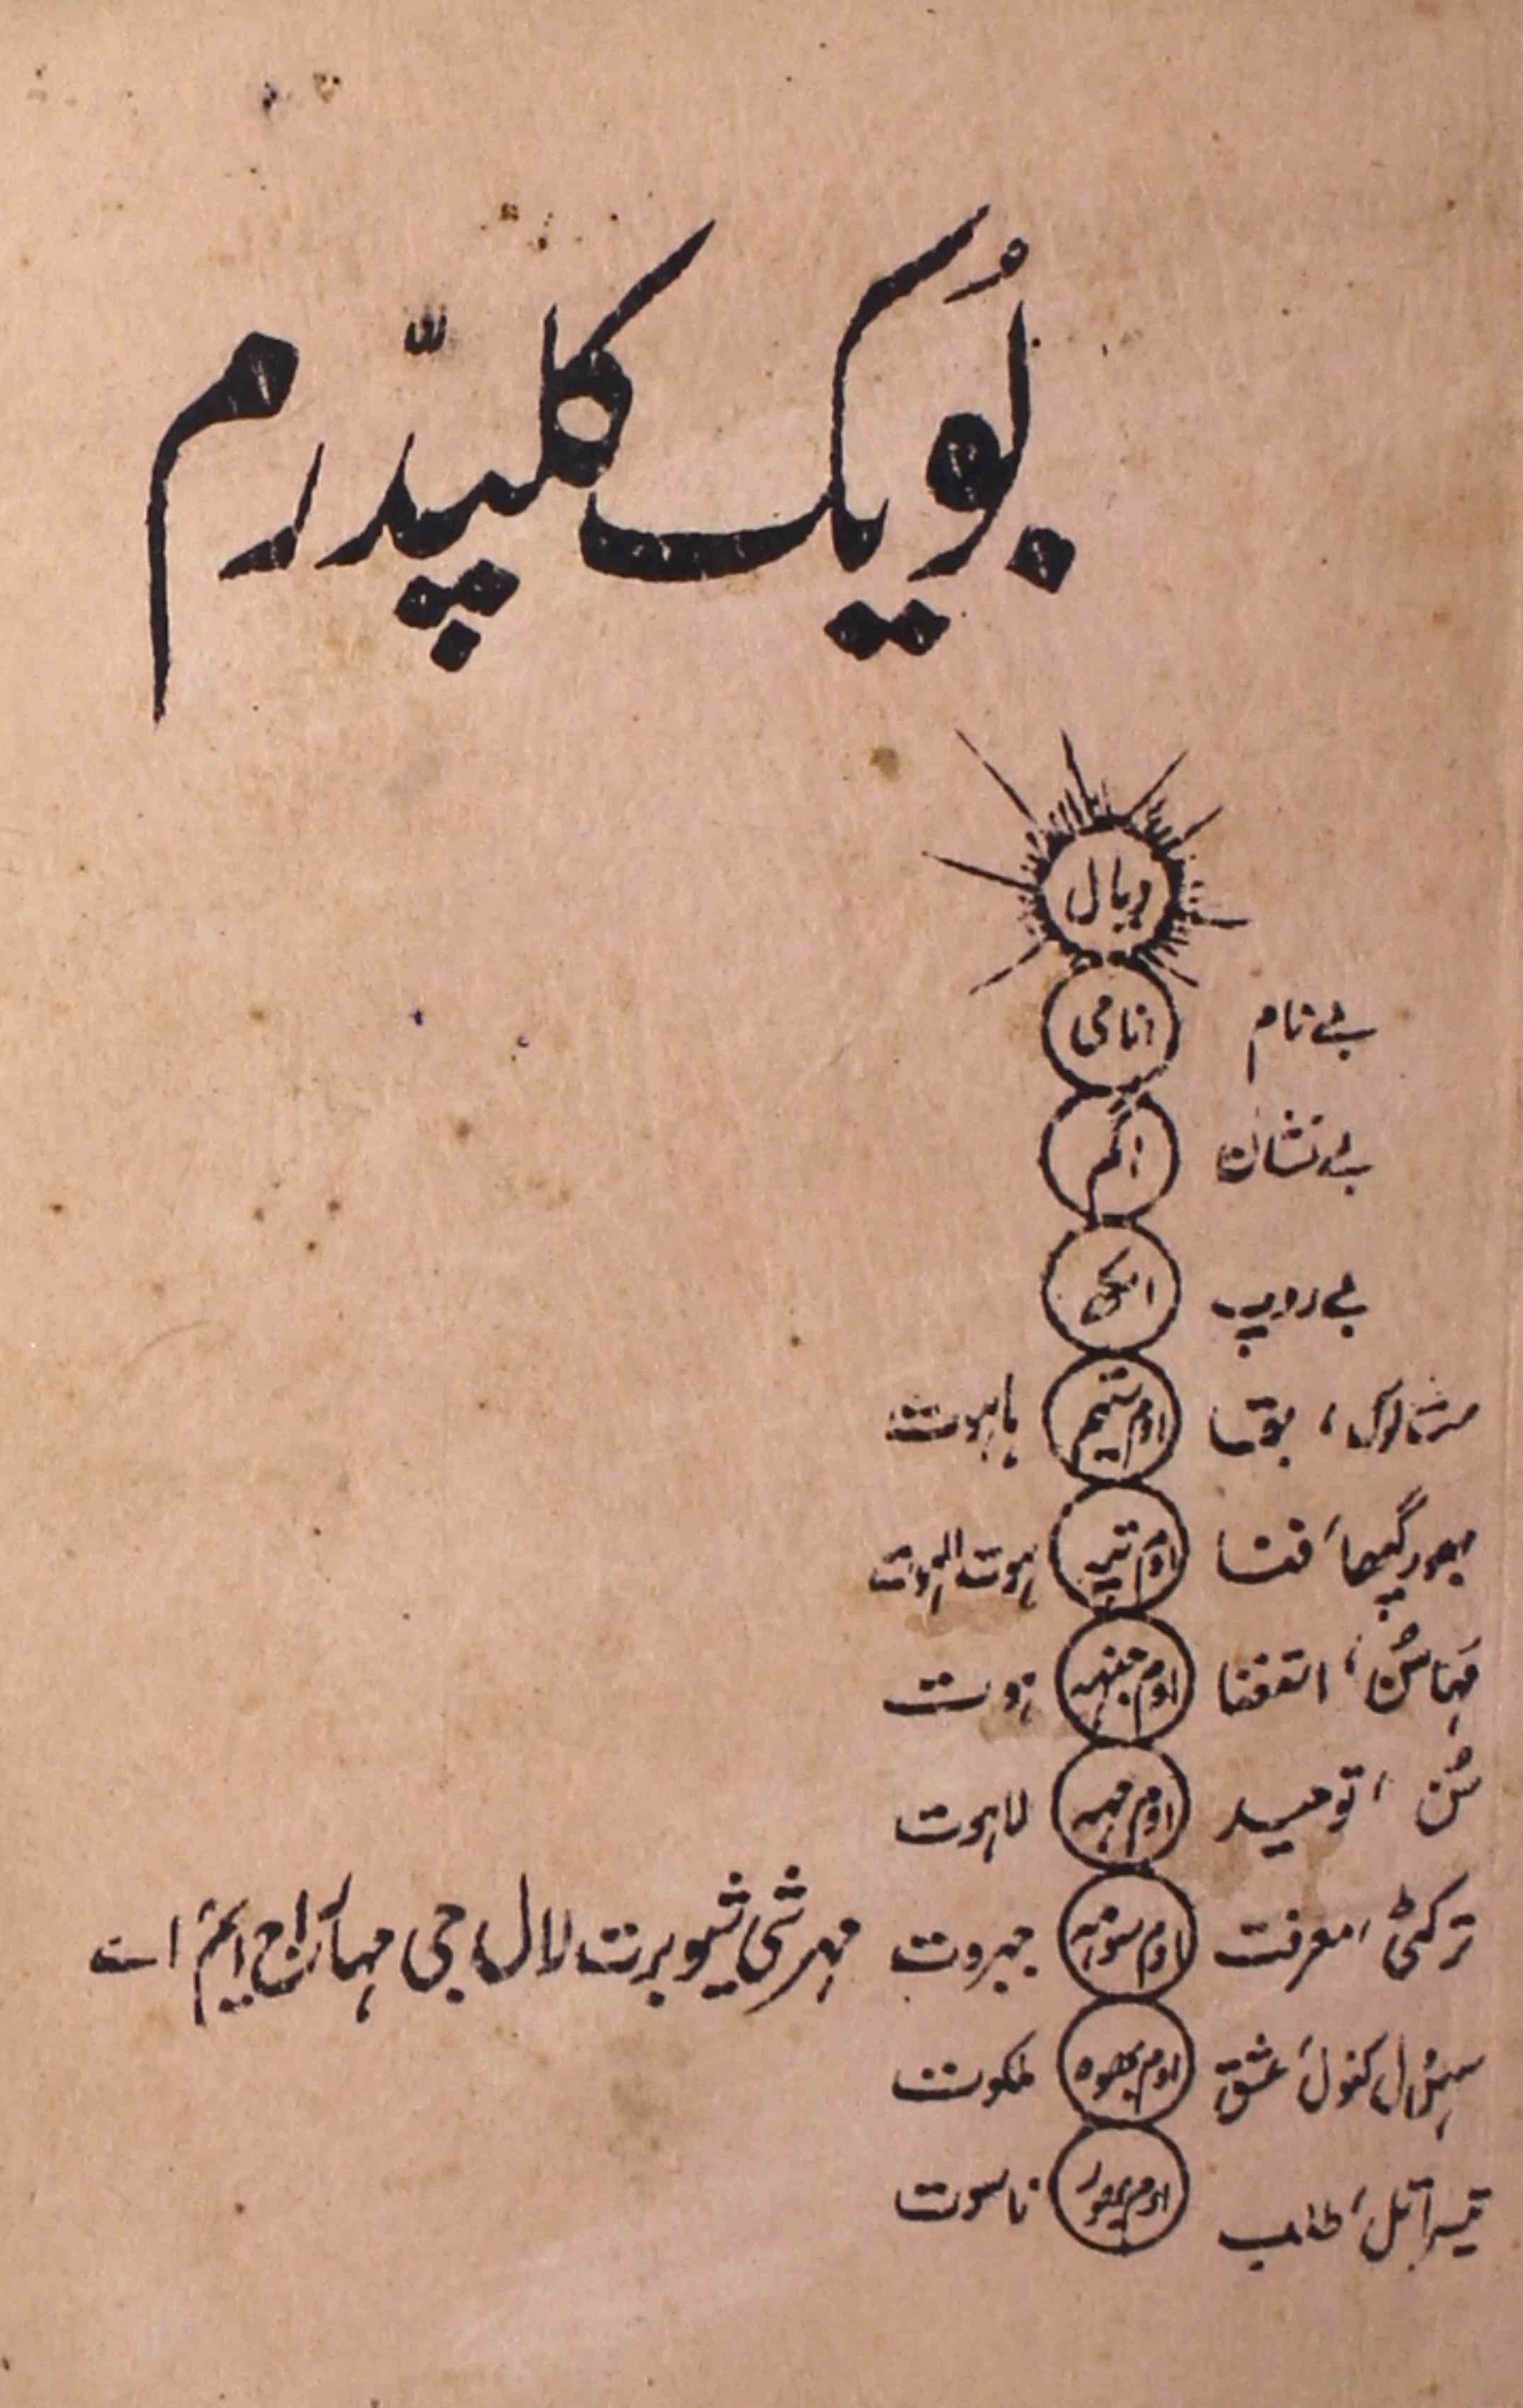 بُویک کلپدّرم
دیال
بے نام انامی
بے نشان اگم
بے روپ الکھ
ست لوک، بقا اوم ستیم ہاہوت
بھور گپھا، فنا اوم تپہ ہوت الہوت
مہا سُن، الفنا اوم جنہہ ہوت
سُن، توحید اوم مہہ لاہوت
ترکٹی، معرفت اوم سواہہ جبروت مہرشی شیو برت لال جی مہاراج ایم اے
سہنس دل کنول، عشق اوم بھوہ ملکوت
تیسرا تل، طلب اوم بھور ناسوت